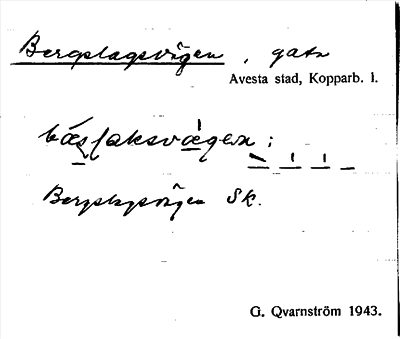 Bergslagsvägen, gata
Avesta stad, Kopparb. l.
Bergslagsvägen Sk.
G. Qvarnström 1943.